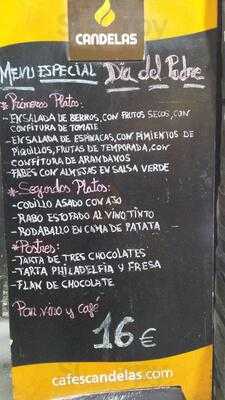 CANDELAS
Menu Especial Día del Padre
* Primeros Platos:
- ENSALADA DE BERROS, CON FRUTOS SECOS, CON
CONFITURA DE TOMATE
- ENSALADA DE ESPINACAS, CON PIMIENTOS DE
PIQUILLOS, FRUTAS DE TEMPORADA, CON
CONFITURA DE ARANDANOS
- FABES CON ALMEJAS EN SALSA VERDE
* Segundos Platos:
- CODILLO ASADO CON AJO
- RABO ESTOFADO AL VINO TINTO
- RODABALLO EN CAMA DE PATATA
* Postres:
- TARTA DE TRES CHOCOLATES
- TARTA PHILADELFIA Y FRESA
- FLAN DE CHOCOLATE
Pan vino y café
16 €
cafescandelas.com